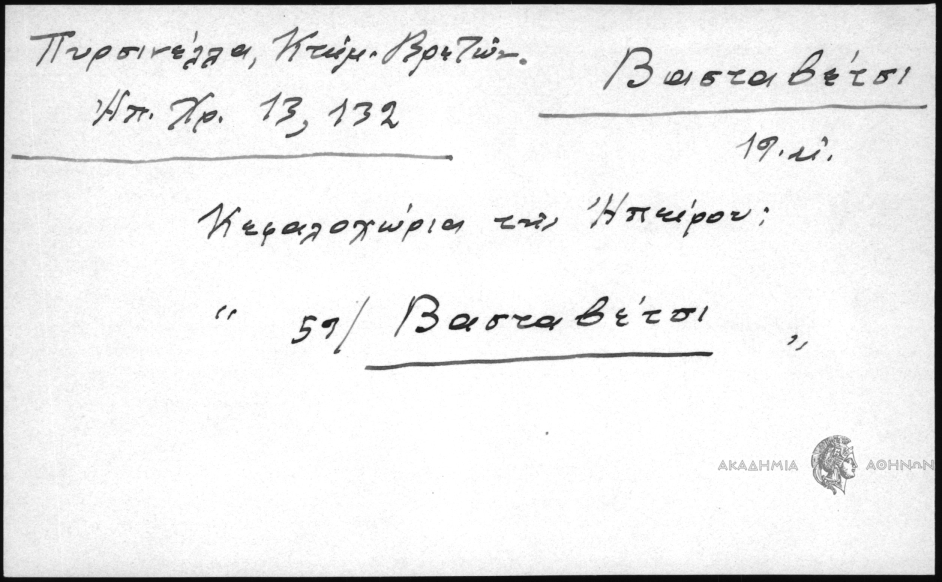 Πυρσινέλλα, Κτήμ. Βρετών.
Ἠπ. Χρ. 13, 132
Βασταβέτσι
19. αἰ.
Κεφαλοχώρια τῆς Ἠπείρου:
" 59/ Βασταβέτσι "
ΑΚΑΔΗΜΙΑ ΑΘΗΝΩΝ